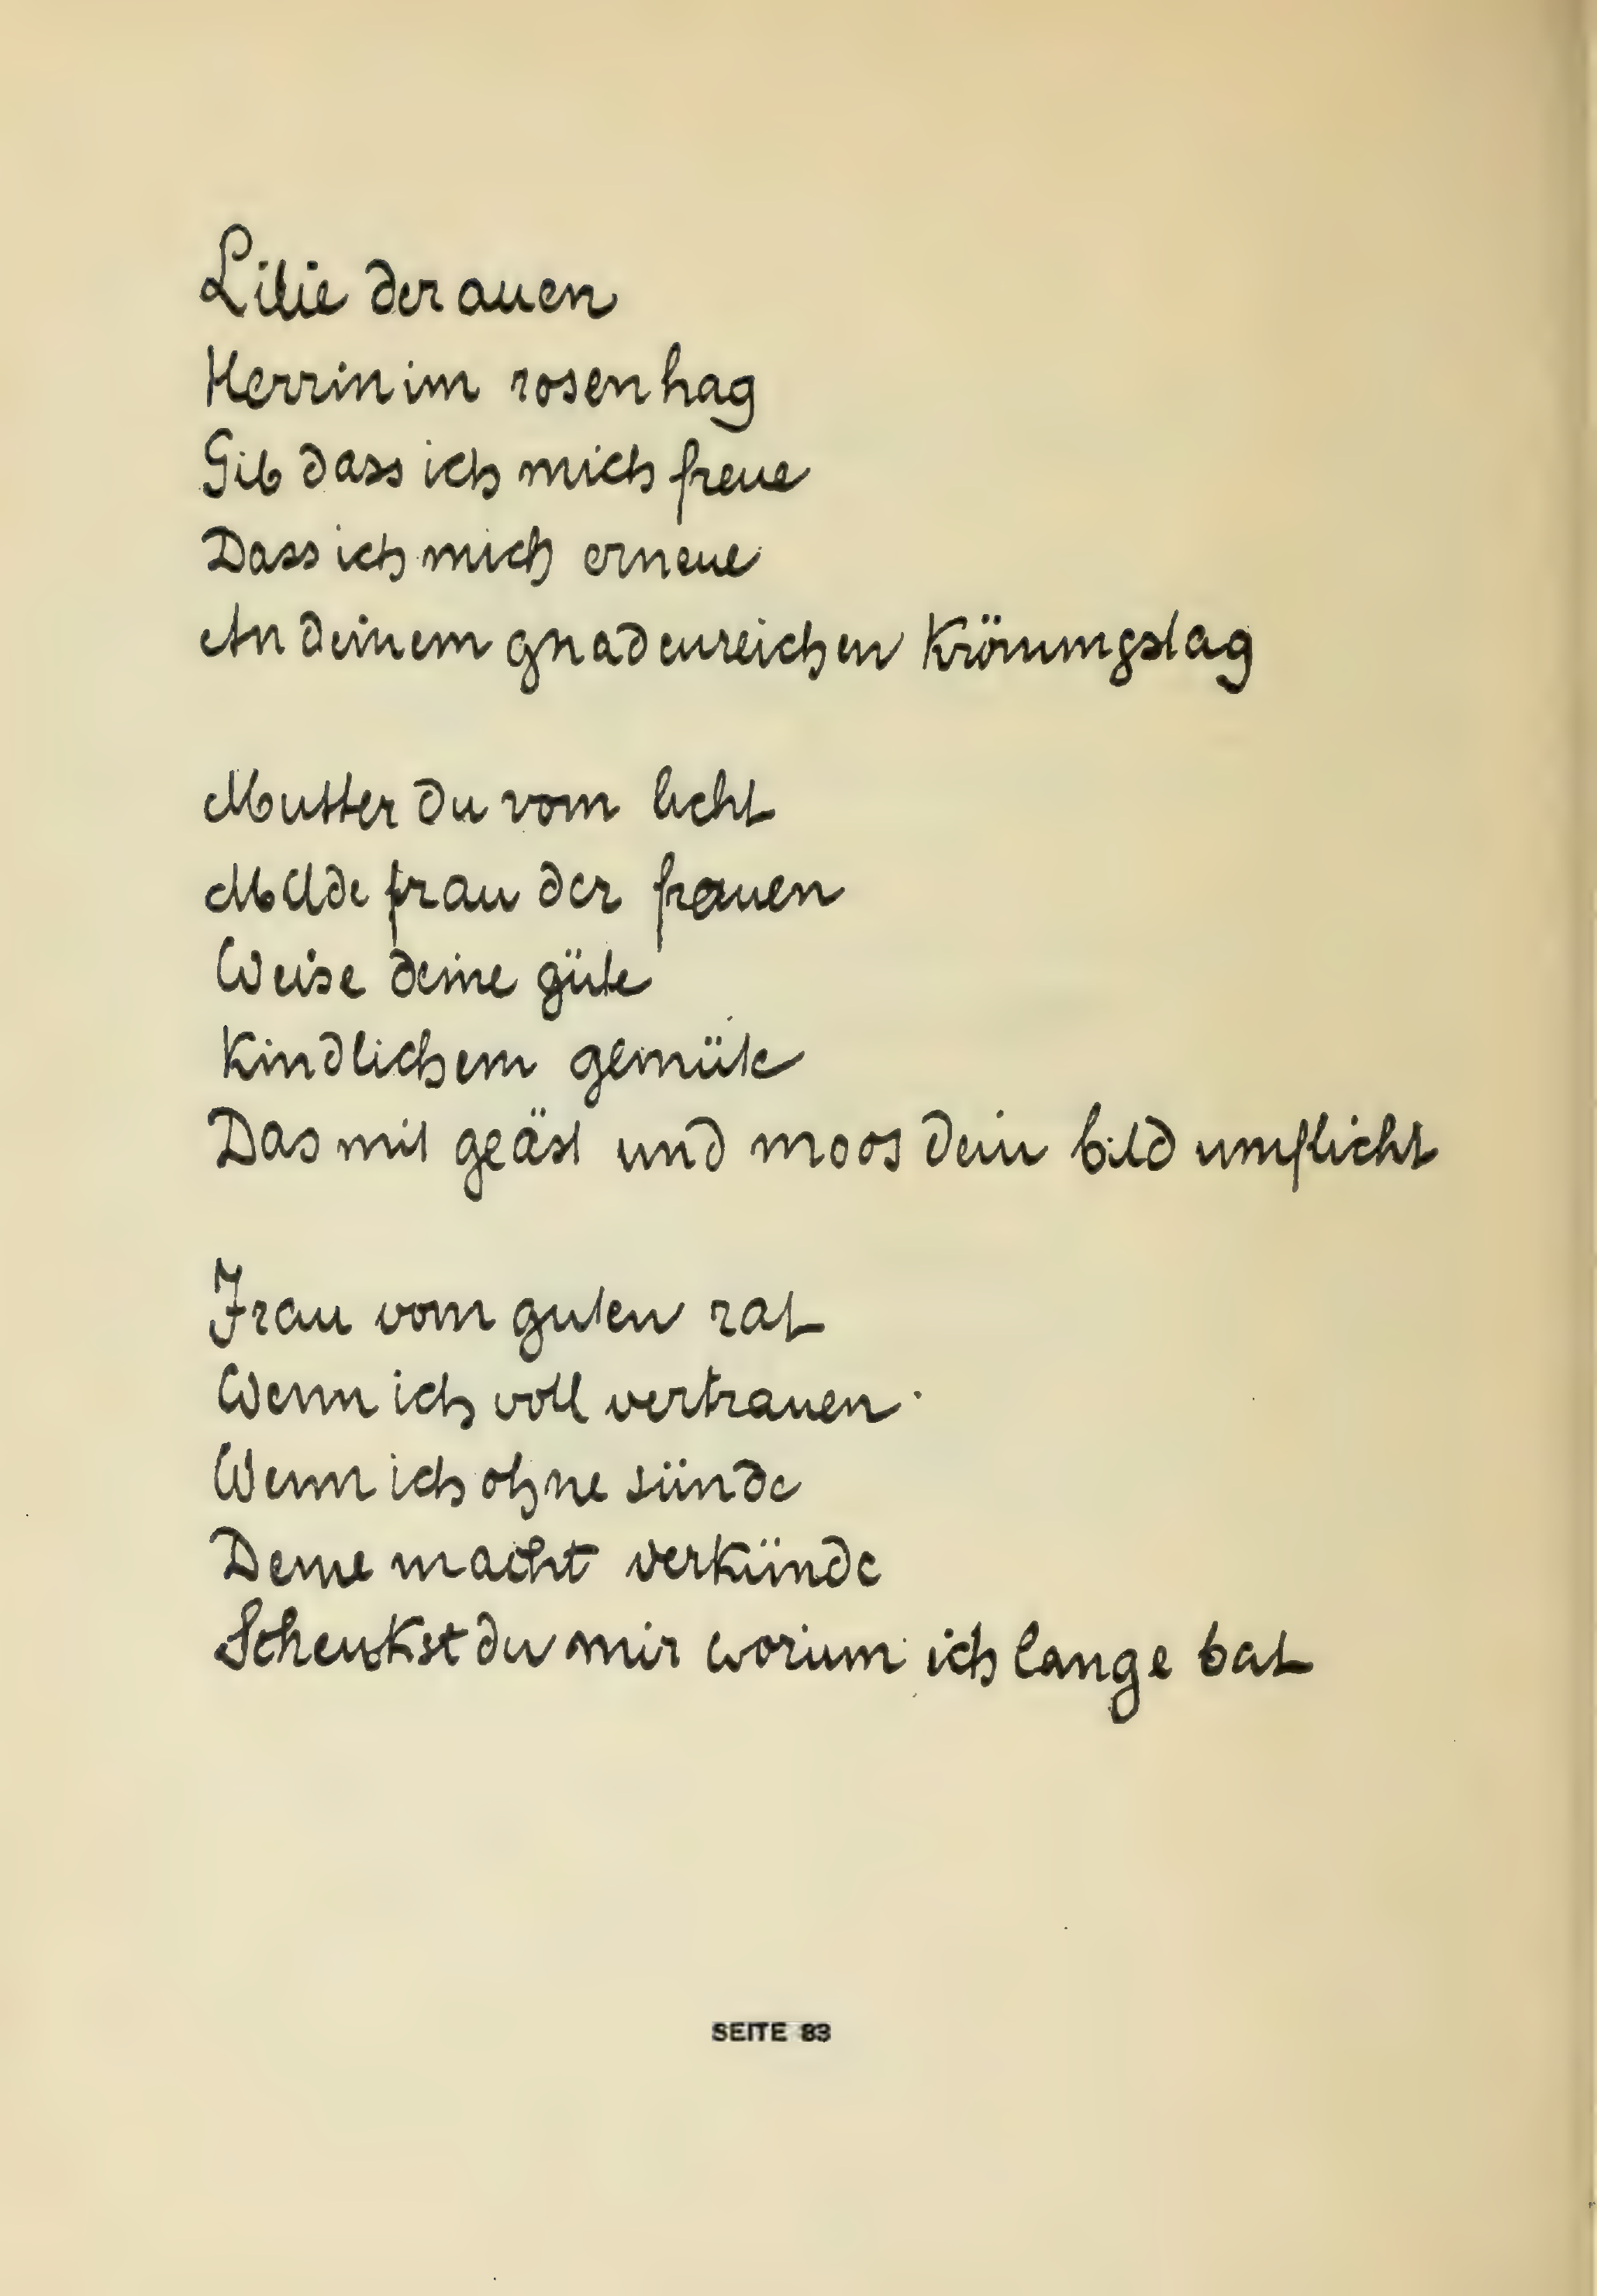 Lilie der auen
Herrin im rosenhag
Gib dass ich mich freue
Dass ich mich erneue
An deinem gnadenreichen Krönungstag
Mutter du vom licht
Milde frau der frauen
Weise deine güte
Kindlichem gemüte
Das mit geäst und moos dein bild umflicht
Frau vom guten rat
Wenn ich voll vertrauen
Wenn ich ohne sünde
Deine macht verkünde
Schenkst du mir worum ich lange bat
SEITE 83